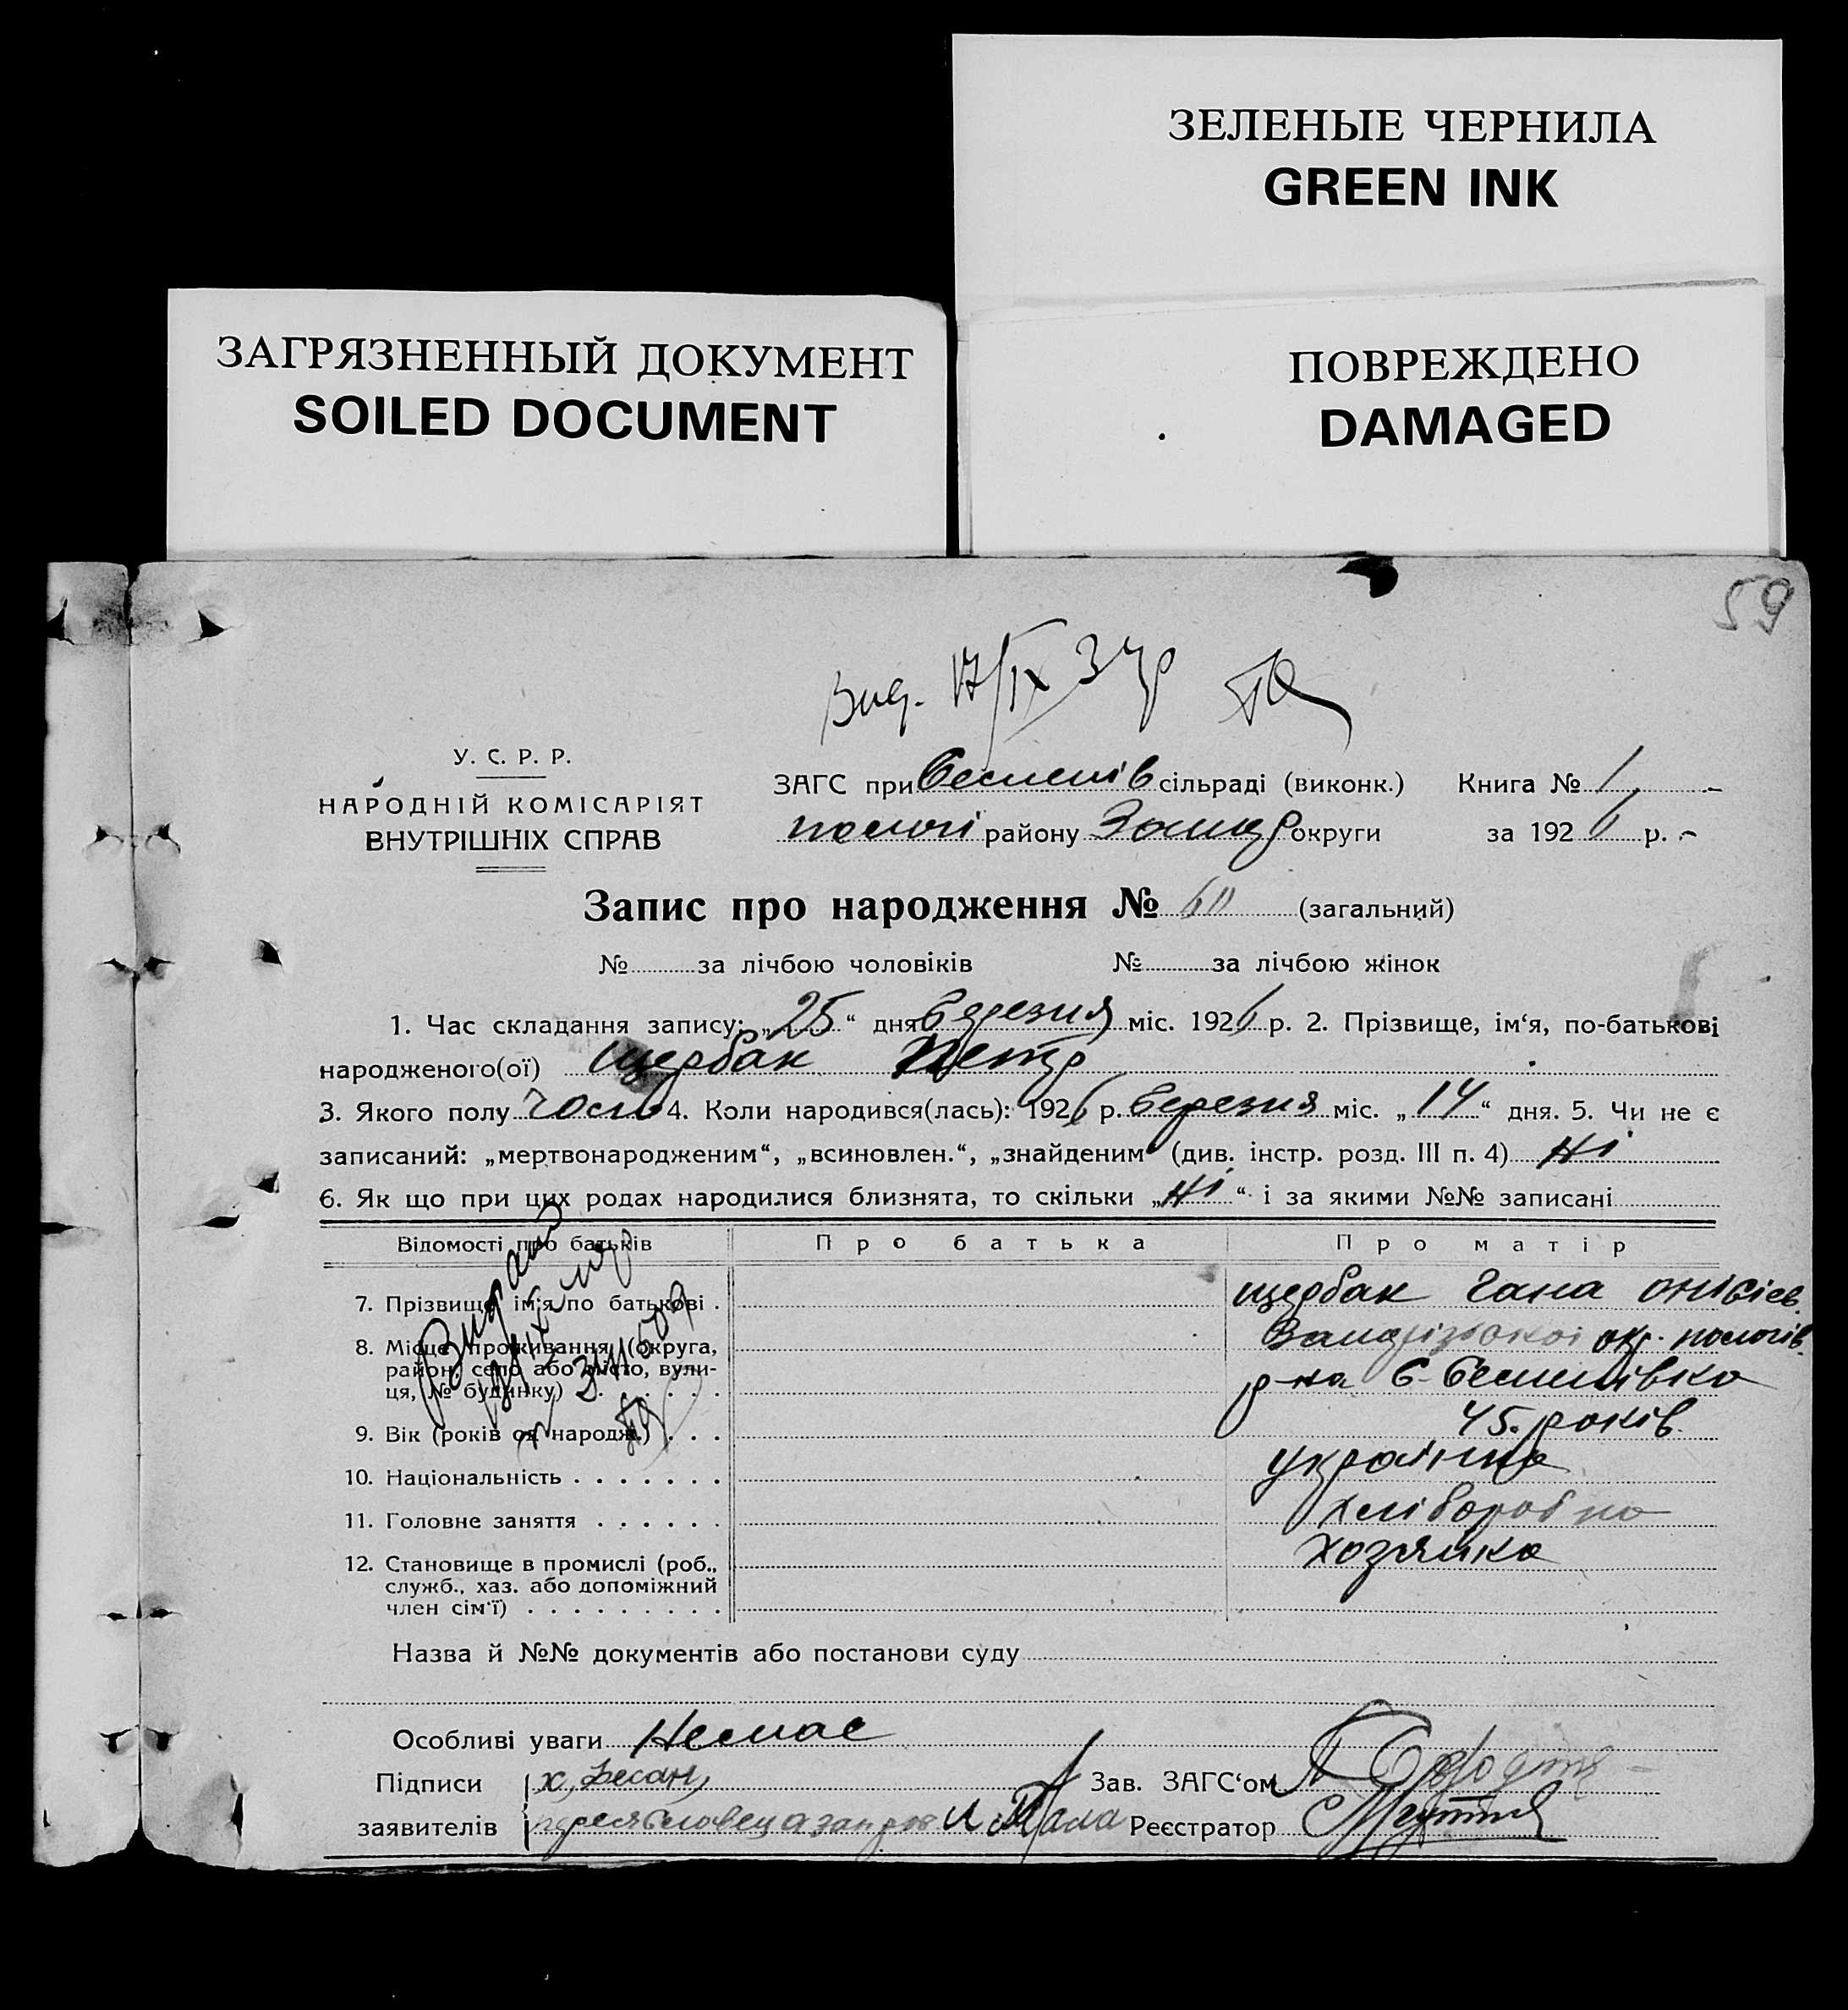 ЗЕЛЕНЫЕ ЧЕРНИЛА
GREEN INK
ЗАГРЯЗНЕННЫЙ ДОКУМЕНТ
SOILED DOCUMENT
ПОВРЕЖДЕНО
DAMAGED
59
Вид. 17/IX 34р
У. С. Р. Р.
НАРОДНІЙ КОМІСАРІЯТ
ВНУТРІШНІХ СПРАВ
ЗАГС при сільраді (виконк.) Книга № 1
пологі району Запор округи за 1926 р.
Запис про народження № 60 (загальний)
№ за лічбою чоловіків № за лічбою жінок
1. Час складання запису: „25“ дня березня міс. 1926 р. 2. Прізвище, ім‘я, по-батькові
народженого(ої) щербак Петр
3. Якого полу чол 4. Коли народився(лась): 1926 р. березня міс. „14“ дня. 5. Чи не є
записаний: „мертвонародженим“, „всиновлен.“, „знайденим“ (див. інстр. розд. III п. 4) ні
6. Як що при цих родах народилися близнята, то скільки „ні“ і за якими №№ записані
Відомості про батьків Про батька Про матір
7. Прізвище, ім‘я по батькові щербак Гана онисіев.
8. Місце проживання (округа, район, село або місто, вулиця, № будинку) окр. пологів.
р-на с.
9. Вік (років од народж.) 45. років.
10. Національність українка
11. Головне заняття хліборобка
12. Становище в промислі (роб., служб., хаз. або допоміжний член сім‘ї) хозяйка
Видано
Назва й №№ документів або постанови суду
Особливі уваги Немае
Підписи Зав. ЗАГС‘ом
заявителів Реєстратор